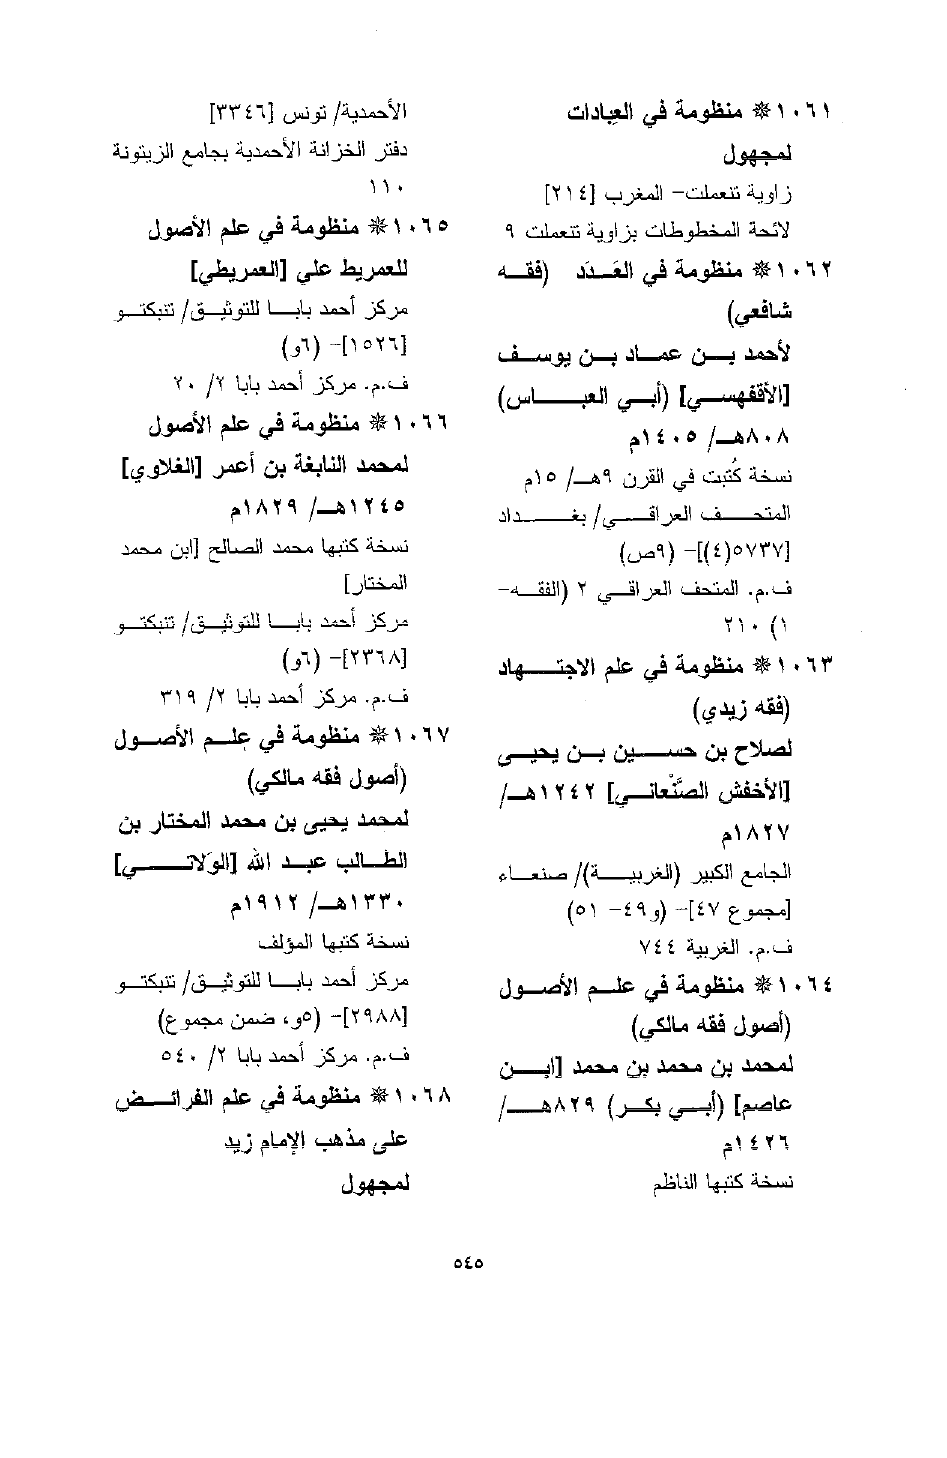 ١٠٦١ ❊ منظومة في العبادات
لمجهول
زاوية تنعملت- المغرب [٢١٤]
لائحة المخطوطات بزاوية تنعملت ٩
١٠٦٢ ❊ منظومة في العَدَد (فقـه
شافعي)
لأحمد بـن عمـاد بـن يوسـف
[الأقفهسـي] (أبـي العبـاس)
٨٠٨هـ/ ١٤٠٥م
نسخة كُتبت في القرن ٩هـ/ ١٥م
المتحـف العراقـي/ بغـداد
[٥٧٣٧(٤)]- (٩ص)
ف.م. المتحف العراقـي ٢ (الفقـه-
١) ٢١٠
١٠٦٣ ❊ منظومة في علم الاجتـهاد
(فقه زيدي)
لصلاح بن حسـين بـن يحيـى
[الأخفش الصَّنْعانـي] ١٢٤٢هـ/
١٨٢٧م
الجامع الكبير (الغربيـة)/ صنعـاء
[مجموع ٤٧]- (و٤٩- ٥١)
ف.م. الغربية ٧٤٤
١٠٦٤ ❊ منظومة في علـم الأصـول
(أصول فقه مالكي)
لمحمد بن محمد بن محمد [ابـن
عاصم] (أبـي بكـر) ٨٢٩هـ/
١٤٢٦م
نسخة كتبها الناظم
الأحمدية/ تونس [٣٣٤٦]
دفتر الخزانة الأحمدية بجامع الزيتونة
١١٠
١٠٦٥ ❊ منظومة في علم الأصول
للعمريط علي [العمريطي]
مركز أحمد بابـا للتوثيـق/ تنبكتـو
[١٥٢٦]- (٦و)
ف.م. مركز أحمد بابا ٢/ ٢٠
١٠٦٦ ❊ منظومة في علم الأصول
لمحمد النابغة بن أعمر [الغلاوي]
١٢٤٥هـ/ ١٨٢٩م
نسخة كتبها محمد الصالح [ابن محمد
المختار]
مركز أحمد بابـا للتوثيـق/ تنبكتـو
[٢٣٦٨]- (٦و)
ف.م. مركز أحمد بابا ٢/ ٣١٩
١٠٦٧ ❊ منظومة في علـم الأصـول
(أصول فقه مالكي)
لمحمد يحيى بن محمد المختار بن
الطـالب عبـد الله [الوَلاتـي]
١٣٣٠هـ/ ١٩١٢م
نسخة كتبها المؤلف
مركز أحمد بابـا للتوثيـق/ تنبكتـو
[٢٩٨٨]- (٥و، ضمن مجموع)
ف.م. مركز أحمد بابا ٢/ ٥٤٠
١٠٦٨ ❊ منظومة في علم الفرائـض
على مذهب الإمام زيد
لمجهول
٥٤٥